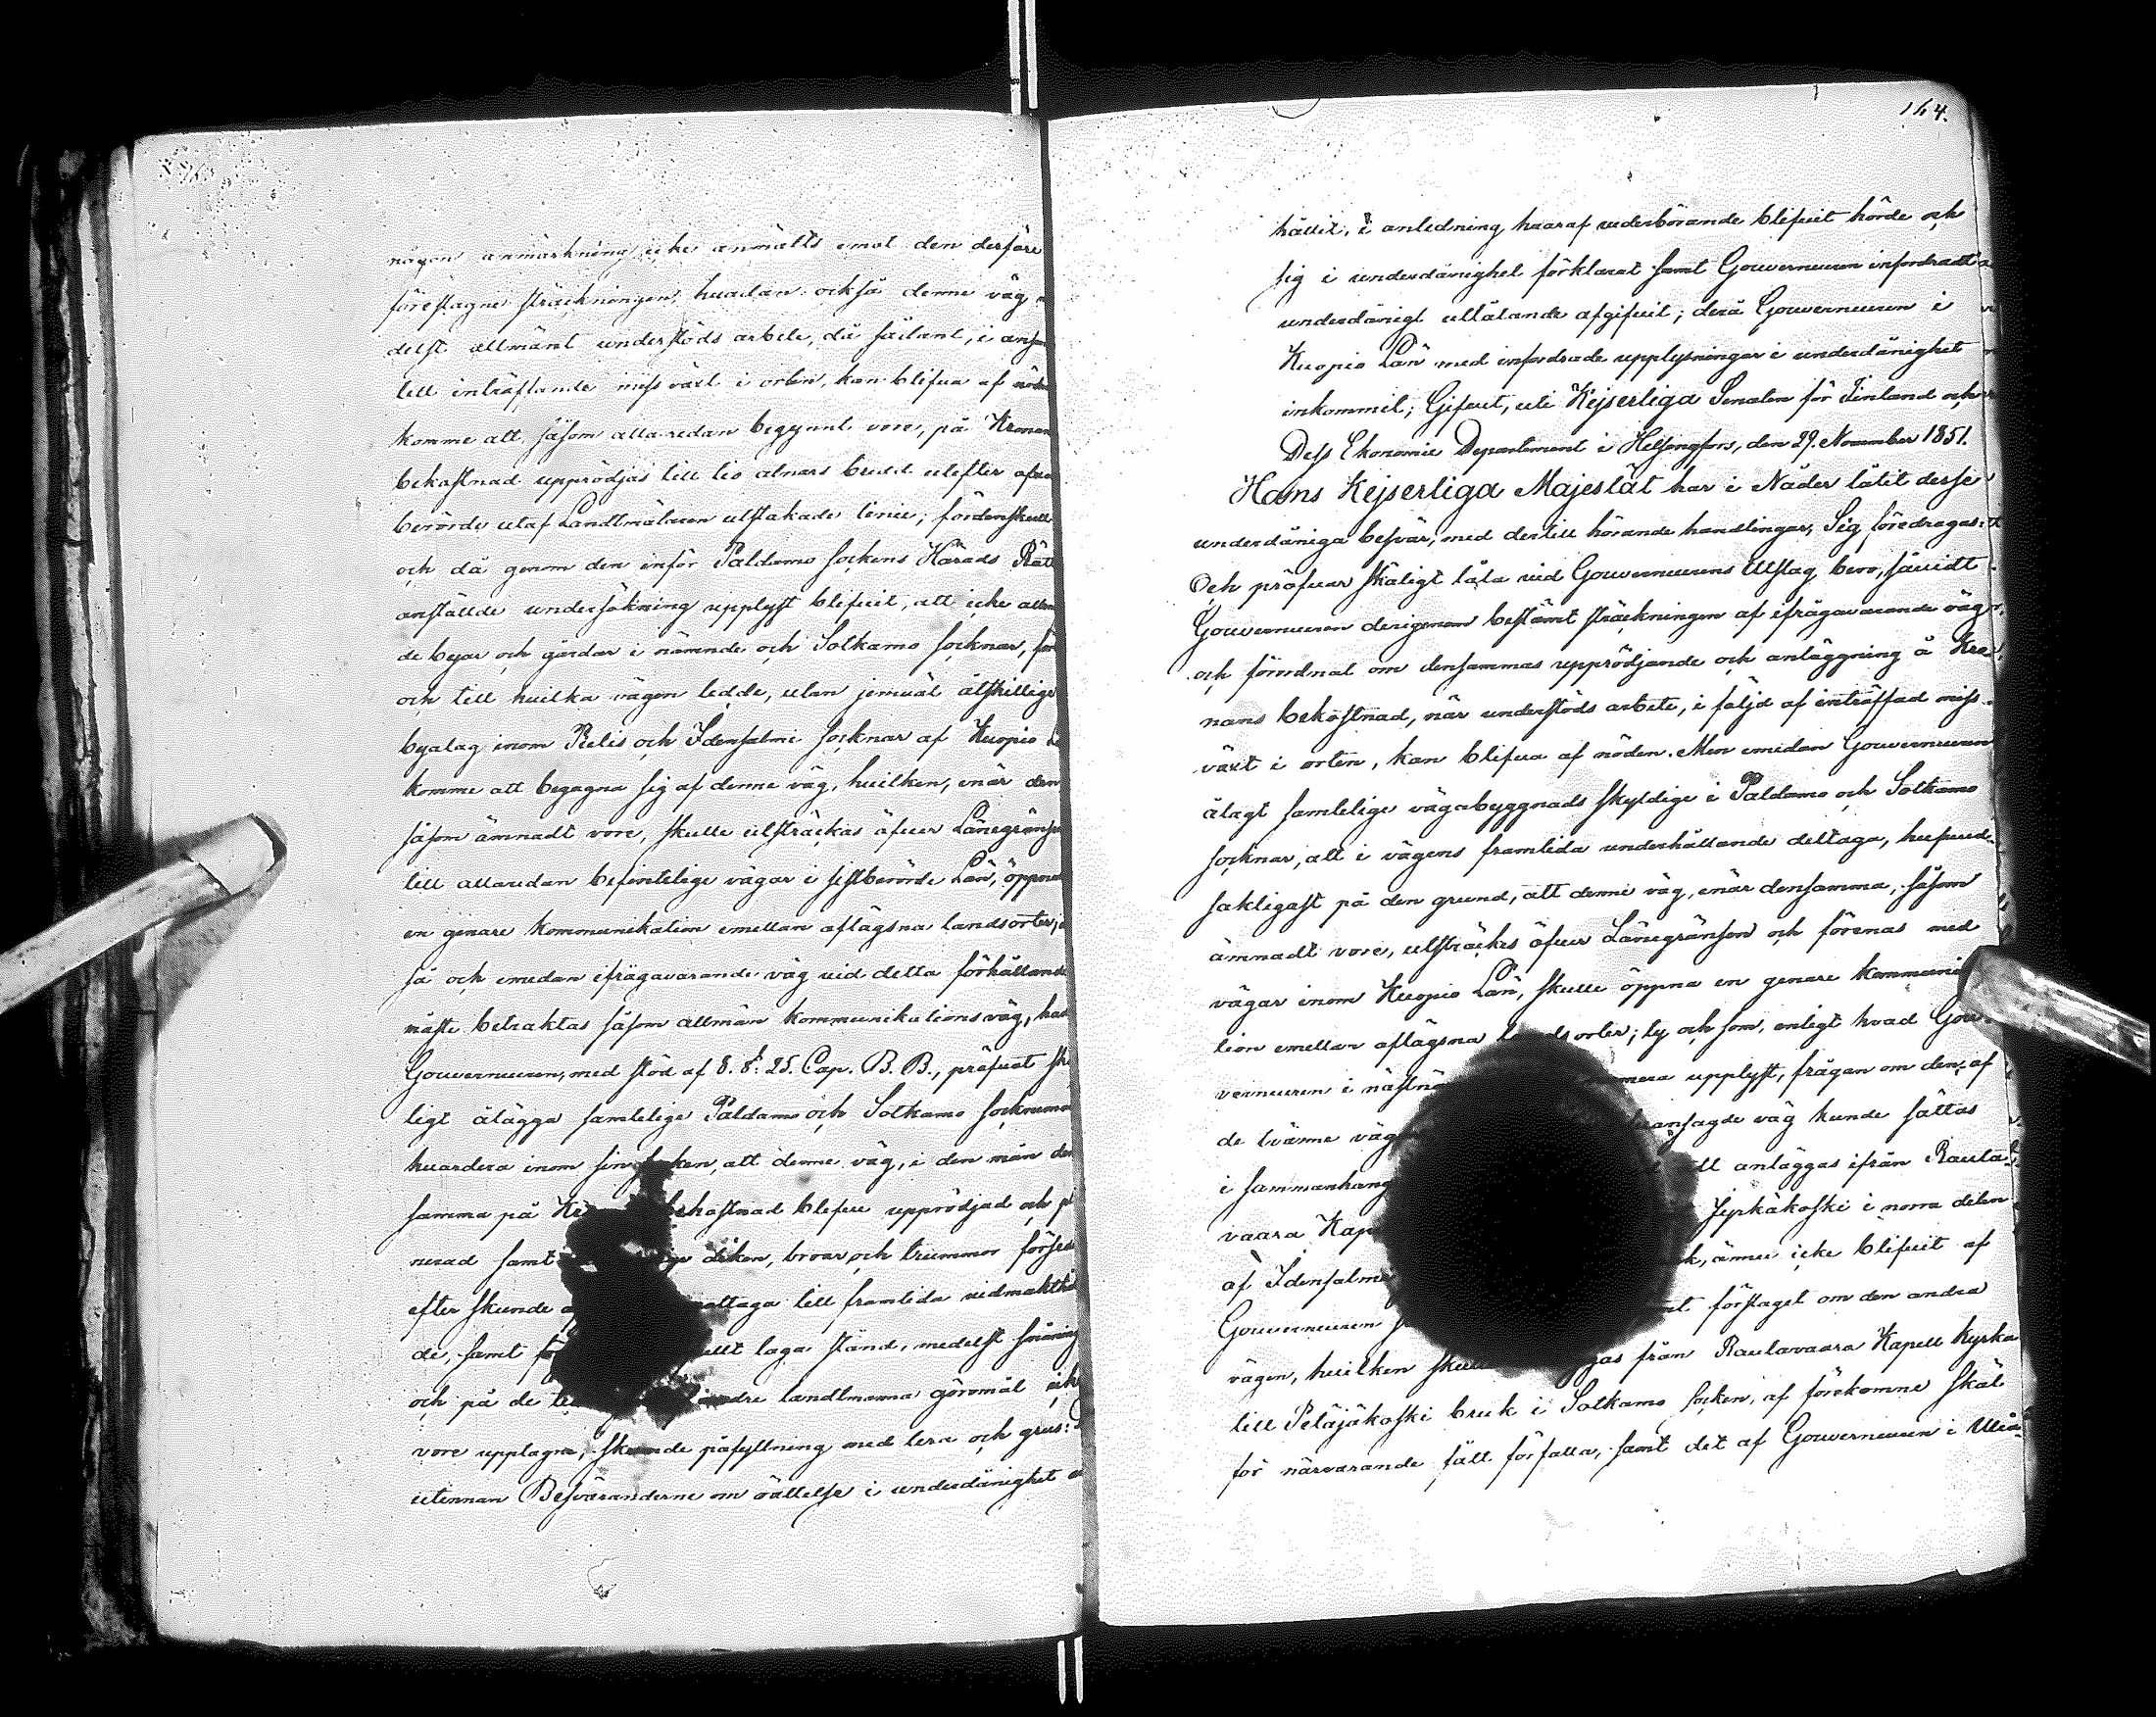 någon anmärkning icke anmälts emot den derföre
föreslagne sträckningen, hvadan också denne väg
delst allmänt understöds arbete, då sådant, i anse
till inträffande missväxt i orten, kan blifva af nöde
komme att såsom allaredan begynnt vore, på Kronans
bekostnad upprödjas till tio alnars bredd utefter ofvan
berörde utaf Landtmätaren utstakade linie; fördenskull
och då genom den inför Paldamo sockens Härads Rätt
anställde undersökning upplyst blifvit, att icke allen
de byar och gårdar i nämnde och Sotkamo socknar, för
och till hvilka vägen ledde, utan jemväl åtskillige
byalag inom Pielis och Idensalmi socknar af Kuopio
komme att begagna sig af denne väg, hvilken, enär den
såsom ämnadt vore, skulle utsträckas öfver Länegränsen
till allaredan befintelige vägar i sistberörde Län, öppna
en genare kommunikation emellan aflägsna landsorter;
så och emedan ifrågavarande väg vid detta förhållande
måste betraktas såsom allmän kommunikationsväg, had
Gouverneuren, med stöd af 8. §. 25. Cap. B. B., pröfvat skä
ligt ålägga samtelige Paldamo och Sotkamo socknemän
hvardera inom sin socken, att denne väg, i den mån den
samma på bekostnad blefve upprödjad och pl
nerad samt diken, broar och trummor försed
efter skeende deltaga till framtida vidmakthål
de, samt fullt laga stånd, medelst snöning
och på de andre landtmanna göromål icke
vore upptagne, skeende påfyllning med lera och grus:
utennan Besväranderne om rättelse i underdånighet
164.
hållit, i anledning hvaraf vederbörande blifvit hörde och
sig i underdånighet förklarat samt Gouverneuren infordradt
underdånigt utlåtande afgifvit; derå Gouverneuren i
Kuopio Län med infordrade upplysningar i underdånighet
inkommit; Gifvet, uti Kejserliga Senaten för Finland och
Dess Ekonomie Departement i Helsingfors, den 29. November 1851.
Hans Kejserliga Majestät har i Nåder låtit desse
underdåniga besvär, med dertill hörande handlingar, Sig föredragas:
Och pröfvar skäligt låta vid Gouverneurens Utslag bero, såvidt
Gouverneuren derigenom bestämt sträckningen af ifrågavarande väg
och förordnat om densammas upprödjande och anläggning å Kro-
nans bekostnad, när understöds arbete, i följd af inträffad miss-
växt i orten, kan blifva af nöden. Men emedan Gouverneuren
ålagt samtelige vägabyggnads skyldige i Paldamo och Sotkamo
socknar, att i vägens framtida underhållande deltaga, hufvud-
sakligast på den grund, att denne väg, enär densamma, såsom
ämnadt vore, utsträckes öfver Länegränsen och förenas med
vägar inom Kuopio Län, skulle öppna en genare kommunika
tion emellan aflägsna landsorter; ty och som, enligt hvad Gou-
verneuren i nästnä mera upplyst, frågan om den, af
de tvänne väg hvaansagde väg kunde sättas
i sammanhang till anläggas ifrån Rauta-
vaara Kap Jyrkäkoski i norra delen
af Idensalmi k, ännu icke blifvit af
Gouverneuren förslaget om den andra
vägen, hvilken skulle gas från Rautavaara Kapell kyrka
till Petäjäkoski bruk i Sotkamo socken, af förekomne skäl
för närvarande fått förfalla, samt det af Gouverneuren i Uleå-